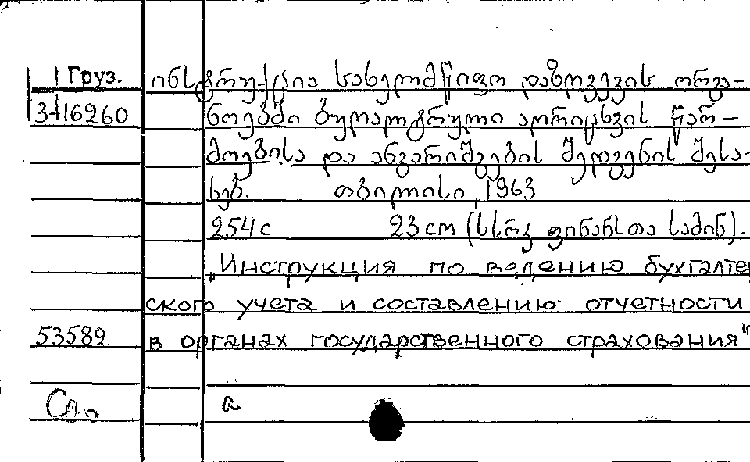 Груз.
ინსტრუქცია სახელმწიფო დაზღვევის ორგა-
3-16260
ნოებში ბუღალტრული აღრიცხვის წარ-
მოებისა და ანგარიშგების შედგენის შესა-
ხებ. თბილისი, 1963
254 с 23 см (სსრკ ფინანსთა სამინ).
„Инструкция по ведению бухгалтер
ского учета и составлению отчетности
53589
в органах государственного страхования"